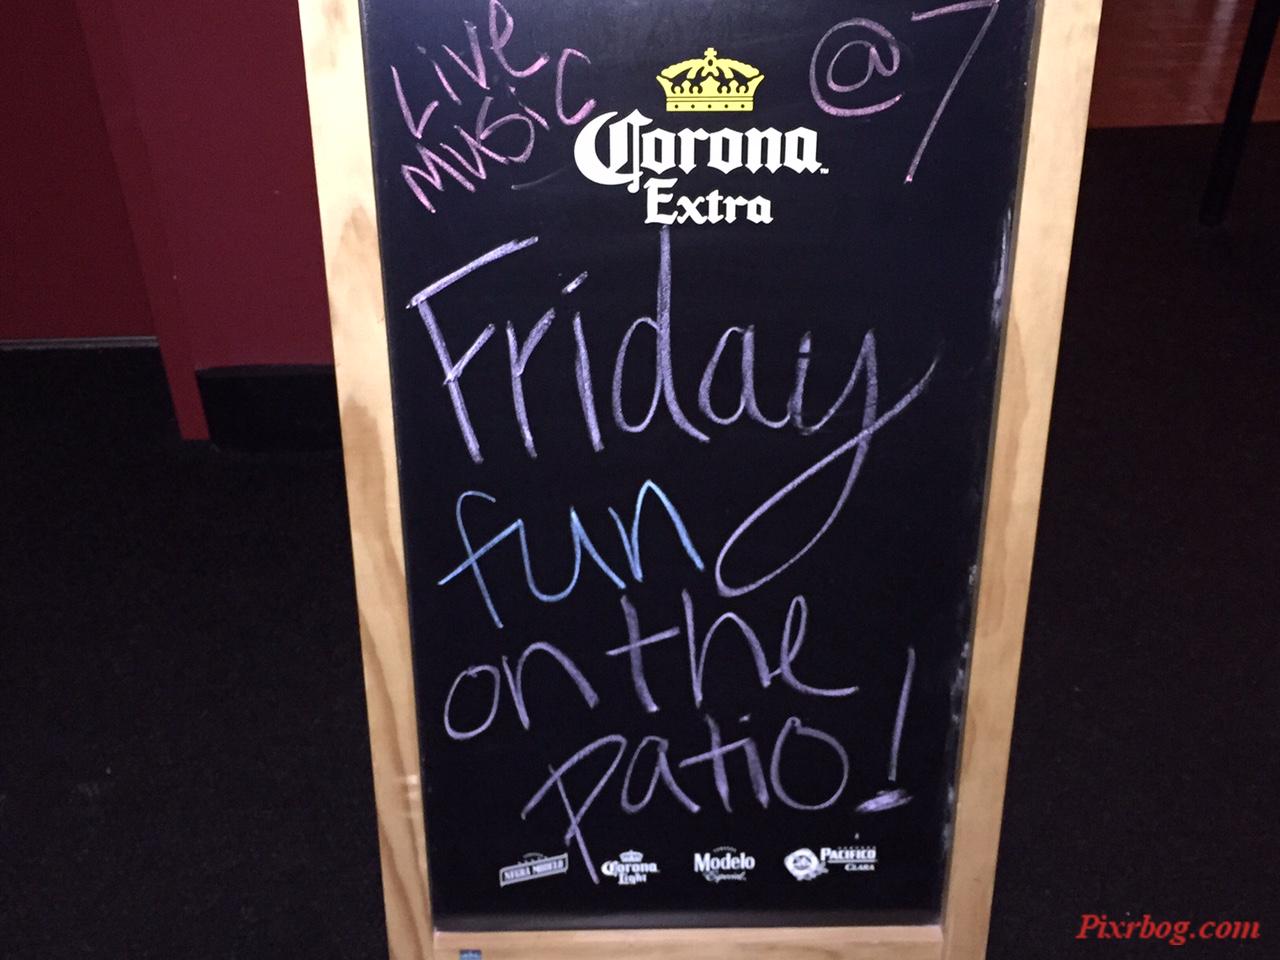 Live
Music
@7
Corona
Extra
Friday
fun
on the
patio!
NEGRA MODELO
Corona
Light
Modelo
Especial
PACIFICO
CLARA
Pixrbog.com